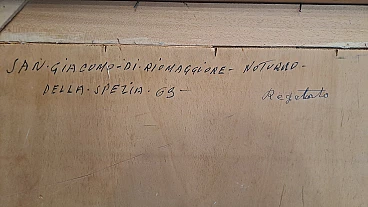 SAN·GIACUMO-DI·RIOMAGGIORE- NOTURNO-
DELLA·SPEZIA·69-
Regalato